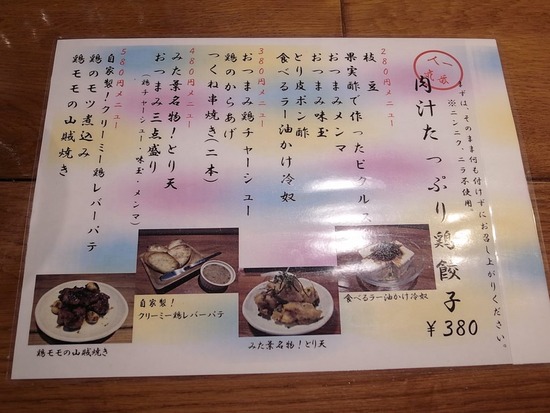 一番
人気
肉汁たっぷり鶏餃子
¥380
まずは、そのまま何も付けずにお召し上がりください。
※ニンニク、ニラ不使用。
枝豆
果実酢で作ったピクルス
おつまみメンマ
おつまみ味玉
とり皮ポン酢
食べるラー油かけ冷奴
380円メニュー
おつまみ鶏チャーシュー
鶏のからあげ
つくね串焼き(二本)
480円メニュー
みた葉名物!とり天
おつまみ三点盛り
(鶏チャーシュー・味玉・メンマ)
580円メニュー
自家製!クリーミー鶏レバーパテ
鶏のモツ煮込み
鶏モモの山賊焼き
食べるラー油かけ冷奴
みた葉名物!とり天
自家製!
クリーミー鶏レバーパテ
鶏モモの山賊焼き